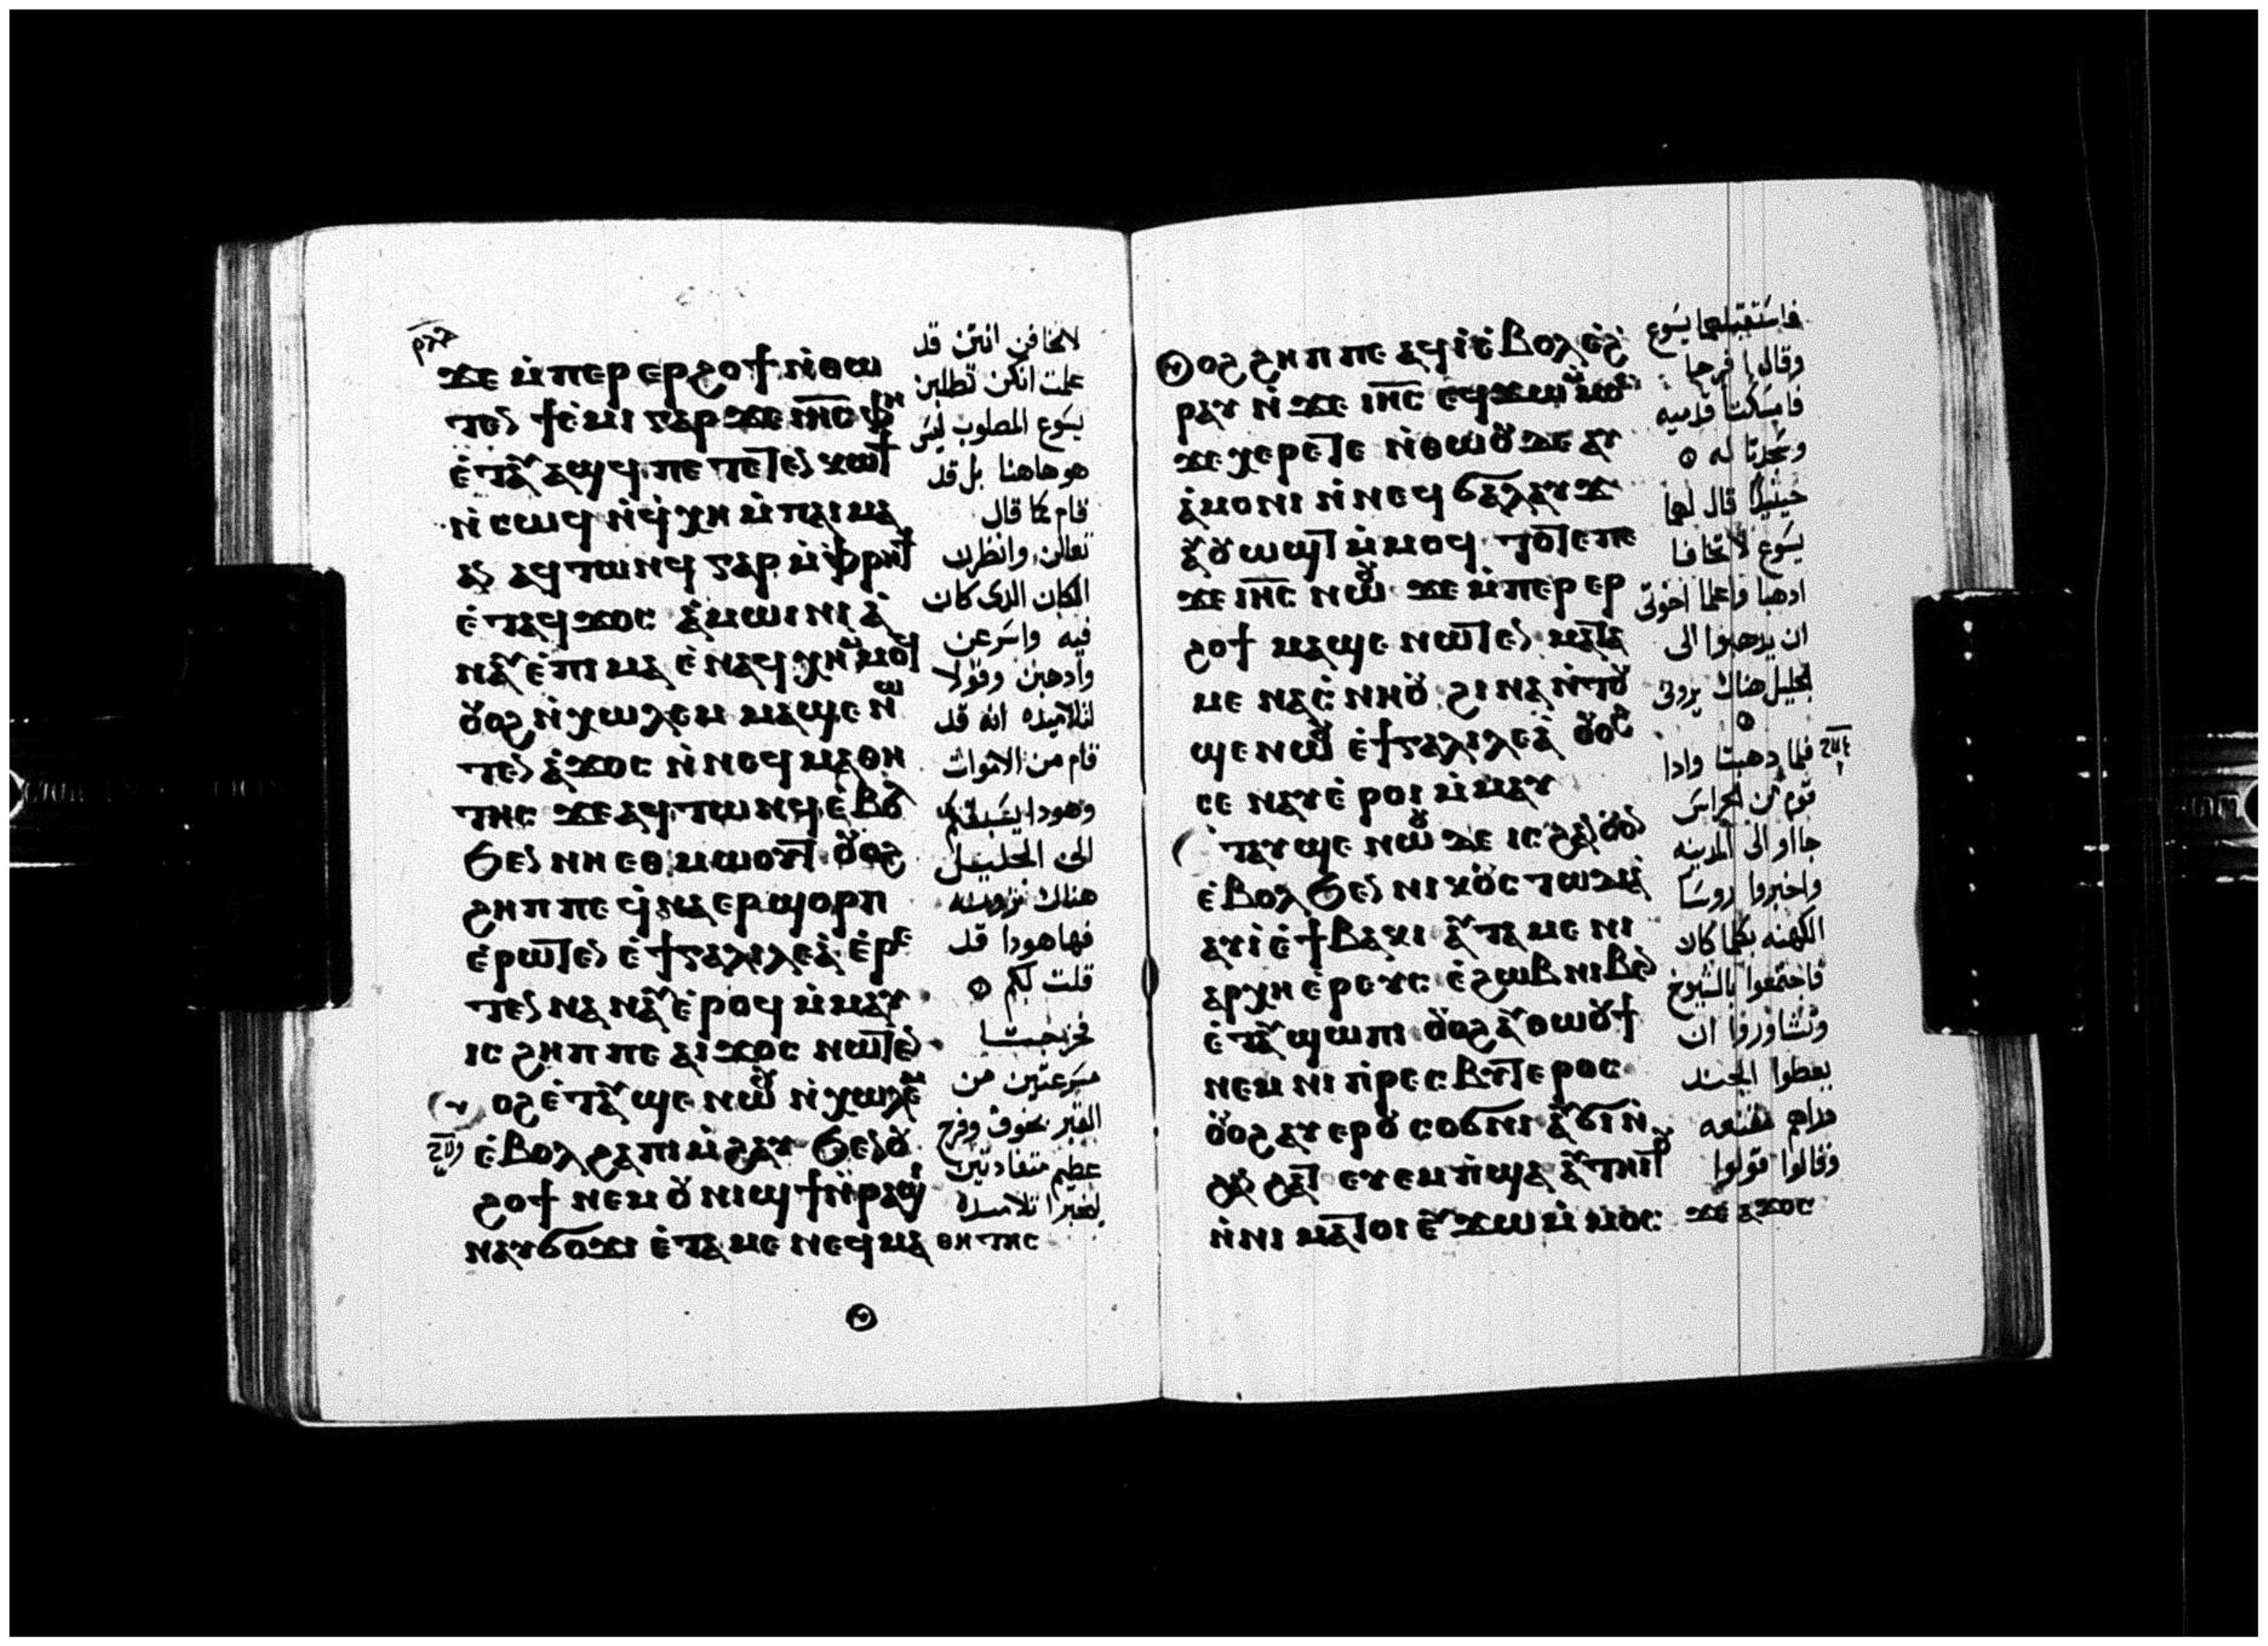 ϫⲉ ⲙ̇ⲡⲉⲣ ⲉⲣϩⲟϯ ⲛ̇ⲑⲱ
ⲧⲉⲛ ϯⲉ̇ⲙⲓ ⲅⲁⲣ ϫⲉ ⲓⲏ̅ⲥ̅ ⲫⲏ
ⲉ̇ⲧⲁⲩⲁϣϥ ⲡⲉ ⲧⲉⲧⲉⲛⲕⲱϯ
ⲛ̇ⲥⲱϥ ⲛ̇ϥ̇ⲭⲏ ⲙ̇ⲡⲁⲓⲙⲁ
ⲁⲛ ⲁϥⲧⲱⲛϥ ⲅⲁⲣ ⲙ̇ⲫⲣⲏϯ
ⲉ̇ⲧⲁϥϫⲟⲥ ⲁ̇ⲙⲱⲓⲛⲓ ⲁ̇
ⲛⲁⲩ ⲉ̇ⲡⲓⲙⲁ ⲉ̇ⲛⲁϥⲭⲏ ⲙ̇ⲙⲟϥ
ⲟⲩⲟϩ ⲛ̇ⲭⲱⲗⲉⲙ ⲙⲁϣⲉ ⲛⲱ
ⲧⲉⲛ ⲁ̇ϫⲟⲥ ⲛ̇ⲛⲉϥⲙⲁⲑⲏ
ⲧⲏⲥ ϫⲉ ⲁϥⲧⲱⲛϥ ⲉ̇ⲃⲟⲗ
ϧⲉⲛ ⲛⲏ ⲉⲑⲙⲱⲟⲩⲧ ⲟⲩⲟϩ
ϩⲏⲡⲡⲉ ϥ̇ⲛⲁⲉⲣϣⲟⲣⲡ
ⲉ̇ⲣⲱⲧⲉⲛ ⲉ̇ϯⲅⲁⲗⲓⲗⲉⲁ̇ ⲉ̇ⲣⲉ
ⲧⲉⲛⲛⲁⲛⲁⲩ ⲉ̇ⲣⲟϥ ⲙ̇ⲙⲁⲩ
ⲓⲥ ϩⲏⲡⲡⲉ ⲁⲓϫⲟⲥ ⲛⲱⲧⲉⲛ
ⲟϩ ⲉ̇ⲧⲁⲩϣⲉ ⲛⲱⲟⲩ ⲛ̇ⲭⲱⲗⲉⲙ
ⲉ̇ⲃⲟⲗ ϩⲁ ⲡⲓⲙ̇ϩⲁⲩ ϧⲉⲛ ⲟⲩ
ϩⲟϯ ⲛⲉⲙ ⲟⲩⲛⲓϣϯ ⲛ̇ⲣⲁϣⲓ
ⲛⲁⲩϭⲟϫⲓ ⲉ̇ⲧⲁⲙⲉ ⲛⲉϥⲙⲁⲑⲏⲧⲏⲥ
لاتخافن انتن قد
علمت انكن تطلبن
يسوع المصلوب ليس
هو هاهنا بل قد
قام كما قال
تعالن وانظرن
المكان الدى كان
فيه واسرعن
وادهبن وقولا
لتلاميده انه قد
قام من الاموات
وهودا يسبقكم
الى الجليل
هناك ترونه
فهاهودا قد
قلت لكم
فخرجتا
مسرعتين من
القبر بخوف وفرح
عظيم
ليخبرا تلاميده
ⲟϩ ϩⲏⲡⲡⲉ ⲁϥⲓ̇ ⲉ̇ⲃⲟⲗ ⲉ̇ϩ
ⲣⲁⲩ ⲛ̇ϫⲉ ⲓⲏ̅ⲥ̅ ⲉϥϫⲱ ⲙ̇ⲙⲟⲥ
ϫⲉ ⲭⲉⲣⲉⲧⲉ ⲛ̇ⲑⲱⲟⲩ ⲇⲉ ⲁⲩ
ⲁ̇ⲙⲟⲛⲓ ⲛ̇ⲛⲉϥϭⲁⲗⲁⲩϫ
ⲁⲩⲟⲩⲱϣⲧ ⲙ̇ⲙⲟϥ ⲧⲟⲧⲉ ⲡⲉ
ϫⲉ ⲓⲏ̅ⲥ̅ ⲛⲱⲟⲩ ϫⲉ ⲙ̇ⲡⲉⲣ ⲉⲣ
ϩⲟϯ ⲙⲁϣⲉ ⲛⲱⲧⲉⲛ ⲙⲁⲧⲁ
ⲙⲉ ⲛⲁⲥ̇ⲛⲏⲟⲩ ϩⲓⲛⲁ ⲛ̇ⲧⲟⲩ
ϣⲉ ⲛⲱⲟⲩ ⲉ̇ϯⲅⲁⲗⲓⲗⲉⲁ̇ ⲟⲩⲟϩ
ⲥⲉⲛⲁⲩ ⲉ̇ⲣⲟⲓ ⲙ̇ⲙⲁⲩ
ⲧⲁⲩϣⲉ ⲛⲱⲟⲩ ⲇⲉ ⲓⲥ ϩⲁⲛⲟⲩⲟⲛ
ⲉ̇ⲃⲟⲗ ϧⲉⲛ ⲛⲓⲕⲟⲩⲥⲧⲱⲇⲓⲁ
ⲁⲩⲓ̇ ⲉ̇ϯⲃⲁⲕⲓ ⲁⲩⲧⲁⲙⲉ ⲛⲓ
ⲁⲣⲭⲏⲉ̇ⲣⲉⲩⲥ ⲉ̇ϩⲱⲃ ⲛⲓⲃⲉⲛ
ⲉ̇ⲧⲁⲩϣⲱⲡⲓ ⲟⲩⲟϩ ⲁⲩⲑⲱⲟⲩϯ
ⲛⲉⲙ ⲛⲓⲡ̇ⲣⲉⲥⲃⲩⲧⲉⲣⲟⲥ
ⲟⲩⲟϩ ⲁⲩⲉⲣⲟⲩⲥⲟϭⲛⲓ ⲁⲩϭⲓ ⲛ̇
ϩⲁⲛϩⲁⲧ ⲉⲩⲉⲙⲡ̇ϣⲁ ⲁⲩⲧⲏⲓⲧⲟⲩ
ⲛ̇ⲛⲓⲙⲁⲧⲟⲓ ⲉⲩϫⲱ ⲙ̇ⲙⲟⲥ ϫⲉ ⲁϫⲟⲥ
فاستقبلهما يسوع
وقال افرحا
فامسكتا قدميه
وسجدتا له
حينئذ قال لهما
يسوع لاتخافا
ادهبا واعلما اخوتى
ان يدهبوا الى
الجليل هناك يرونى
فلما دهبتا وادا
قوم من الحراس
جااو الى المدينه
واخبروا روسا
الكهنه بكلما كان
فاجتمعوا بالشيوخ
وتشاوروا ان
يعطوا الجند
وقالوا قولوا